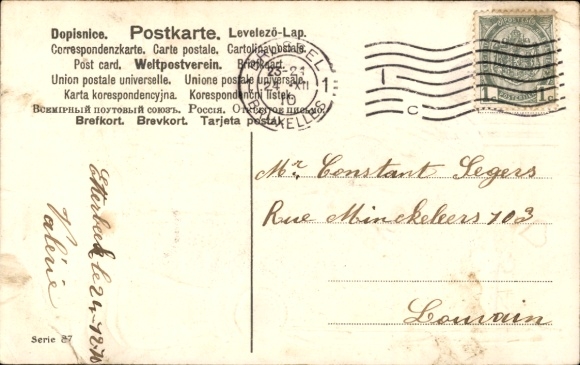 Dopisnice. Postkarte. Levelező-Lap.
Correspondenzkarte. Carte postale. Cartolina postale.
Post card. Weltpostverein. Briefkaart.
Union postale universelle. Unione postale universale.
Karta korespondencyjna. Korespondenčni listek.
Всемірный почтовый союзъ. Россія. Открытое письмо.
Brefkort. Brevkort. Tarjeta postal.
BRUSSEL
23-24
24 XII
10
BRUXELLES
1
1
C
1 c 1 c
Mr. Constant Segers
Rue Minckeleers 103
Louvain
Etterbeek le 24-12-10
Valérie
Serie 37